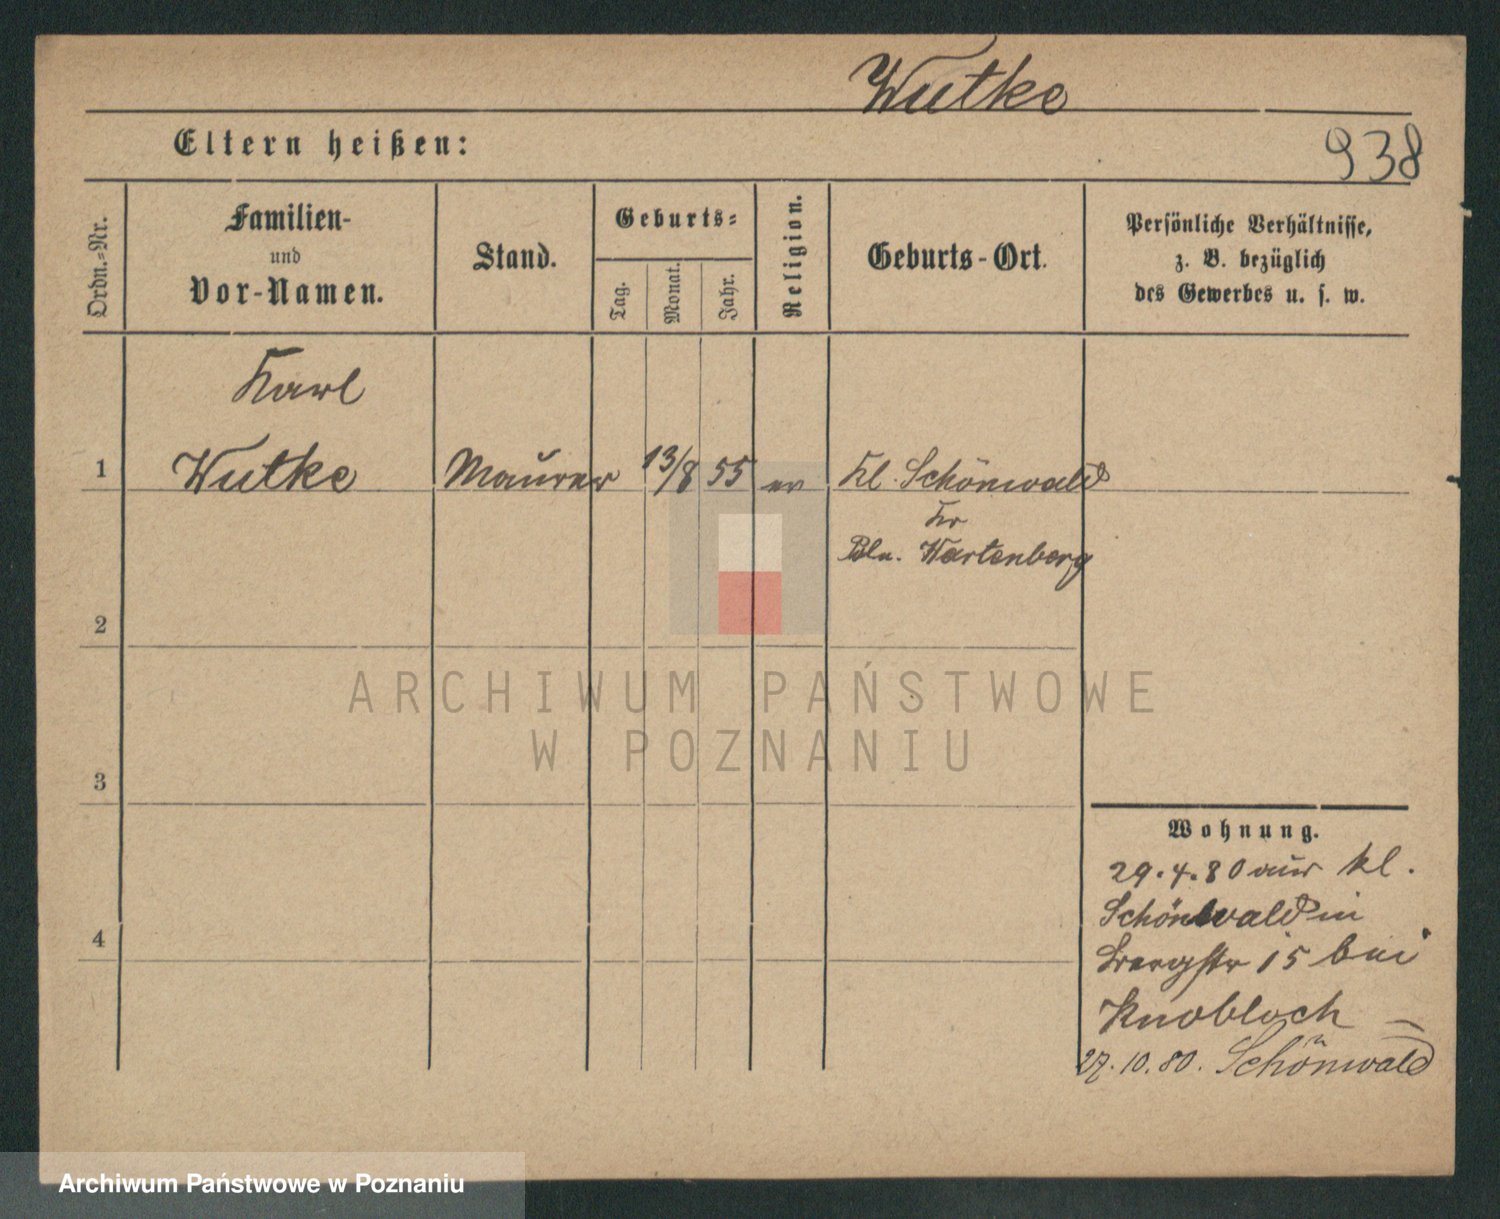 Wutke
Eltern heißen:
938
Ordn.-Nr.
Familien-
und
Vor-Namen.
Stand.
Geburts-
Tag.
Monat.
Jahr.
Religion.
Geburts-Ort.
Persönliche Verhältnisse,
z. B. bezüglich
des Gewerbes u. s. w.
Karl
1 Wutke Maurer 13/8 55 ev Kl. Schönwald
Kr
Pln. Wartenberg
2
3
4
ARCHIWUM PAŃSTWOWE
W POZNANIU
Wohnung.
29.4.80 aus Kl.
Schönwald in
Bergstr 15 bei
Knobloch –
27.10.80. n Schönwald
Archiwum Państwowe w Poznaniu